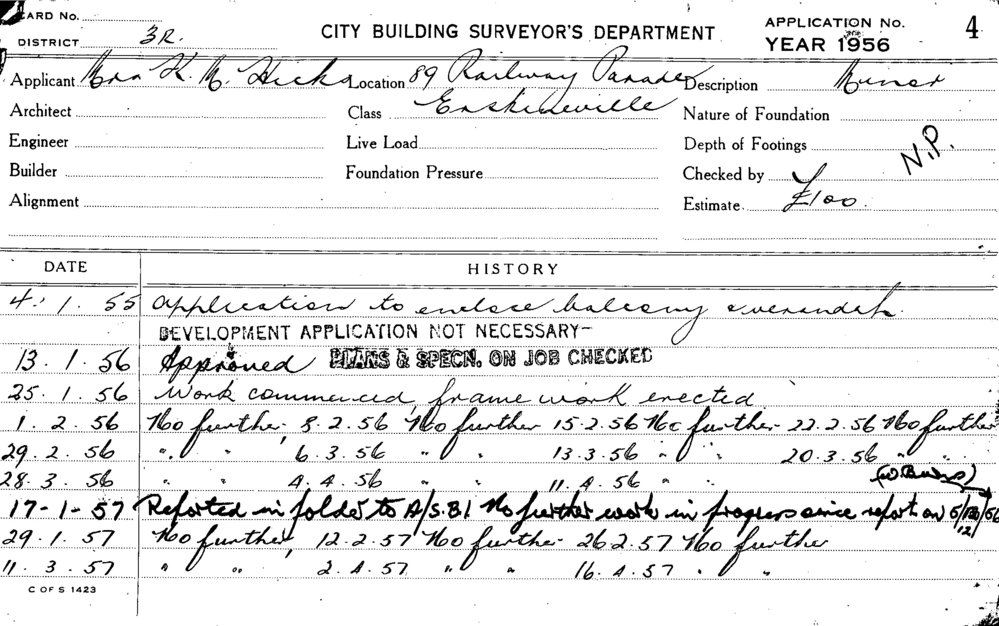 CARD No.
DISTRICT 3R.
CITY BUILDING SURVEYOR'S DEPARTMENT
APPLICATION No.
YEAR 1956
4
Applicant Mrs K. M. Hicks Location 89 Railway Parade Description Minor
Architect Class Erskineville Nature of Foundation
Engineer Live Load Depth of Footings N.P.
Builder Foundation Pressure Checked by
Alignment Estimate £100
DATE HISTORY
4. 1. 55 Application to enclose balcony & verandah.
DEVELOPMENT APPLICATION NOT NECESSARY-
13. 1. 56 Approved PLANS & SPECN. ON JOB CHECKED
25. 1. 56 Work commenced, frame work erected
1. 2. 56 No further, 8. 2. 56 No further 15. 2. 56 No further 22. 2. 56 No further
29. 2. 56 " " 6. 3. 56 " " 13. 3. 56 " " 20. 3. 56 " "
28. 3. 56 " " 4. 4. 56 " " 11. 4. 56 "
17-1-57 Reported in folder to A/S.B1 No further work in progress since report on
29. 1. 57 No further, 12. 2. 57 No further 26. 2. 57 No further
11. 3. 57 " " 2. 4. 57 " " 16. 4. 57 " "
C OF S 1423